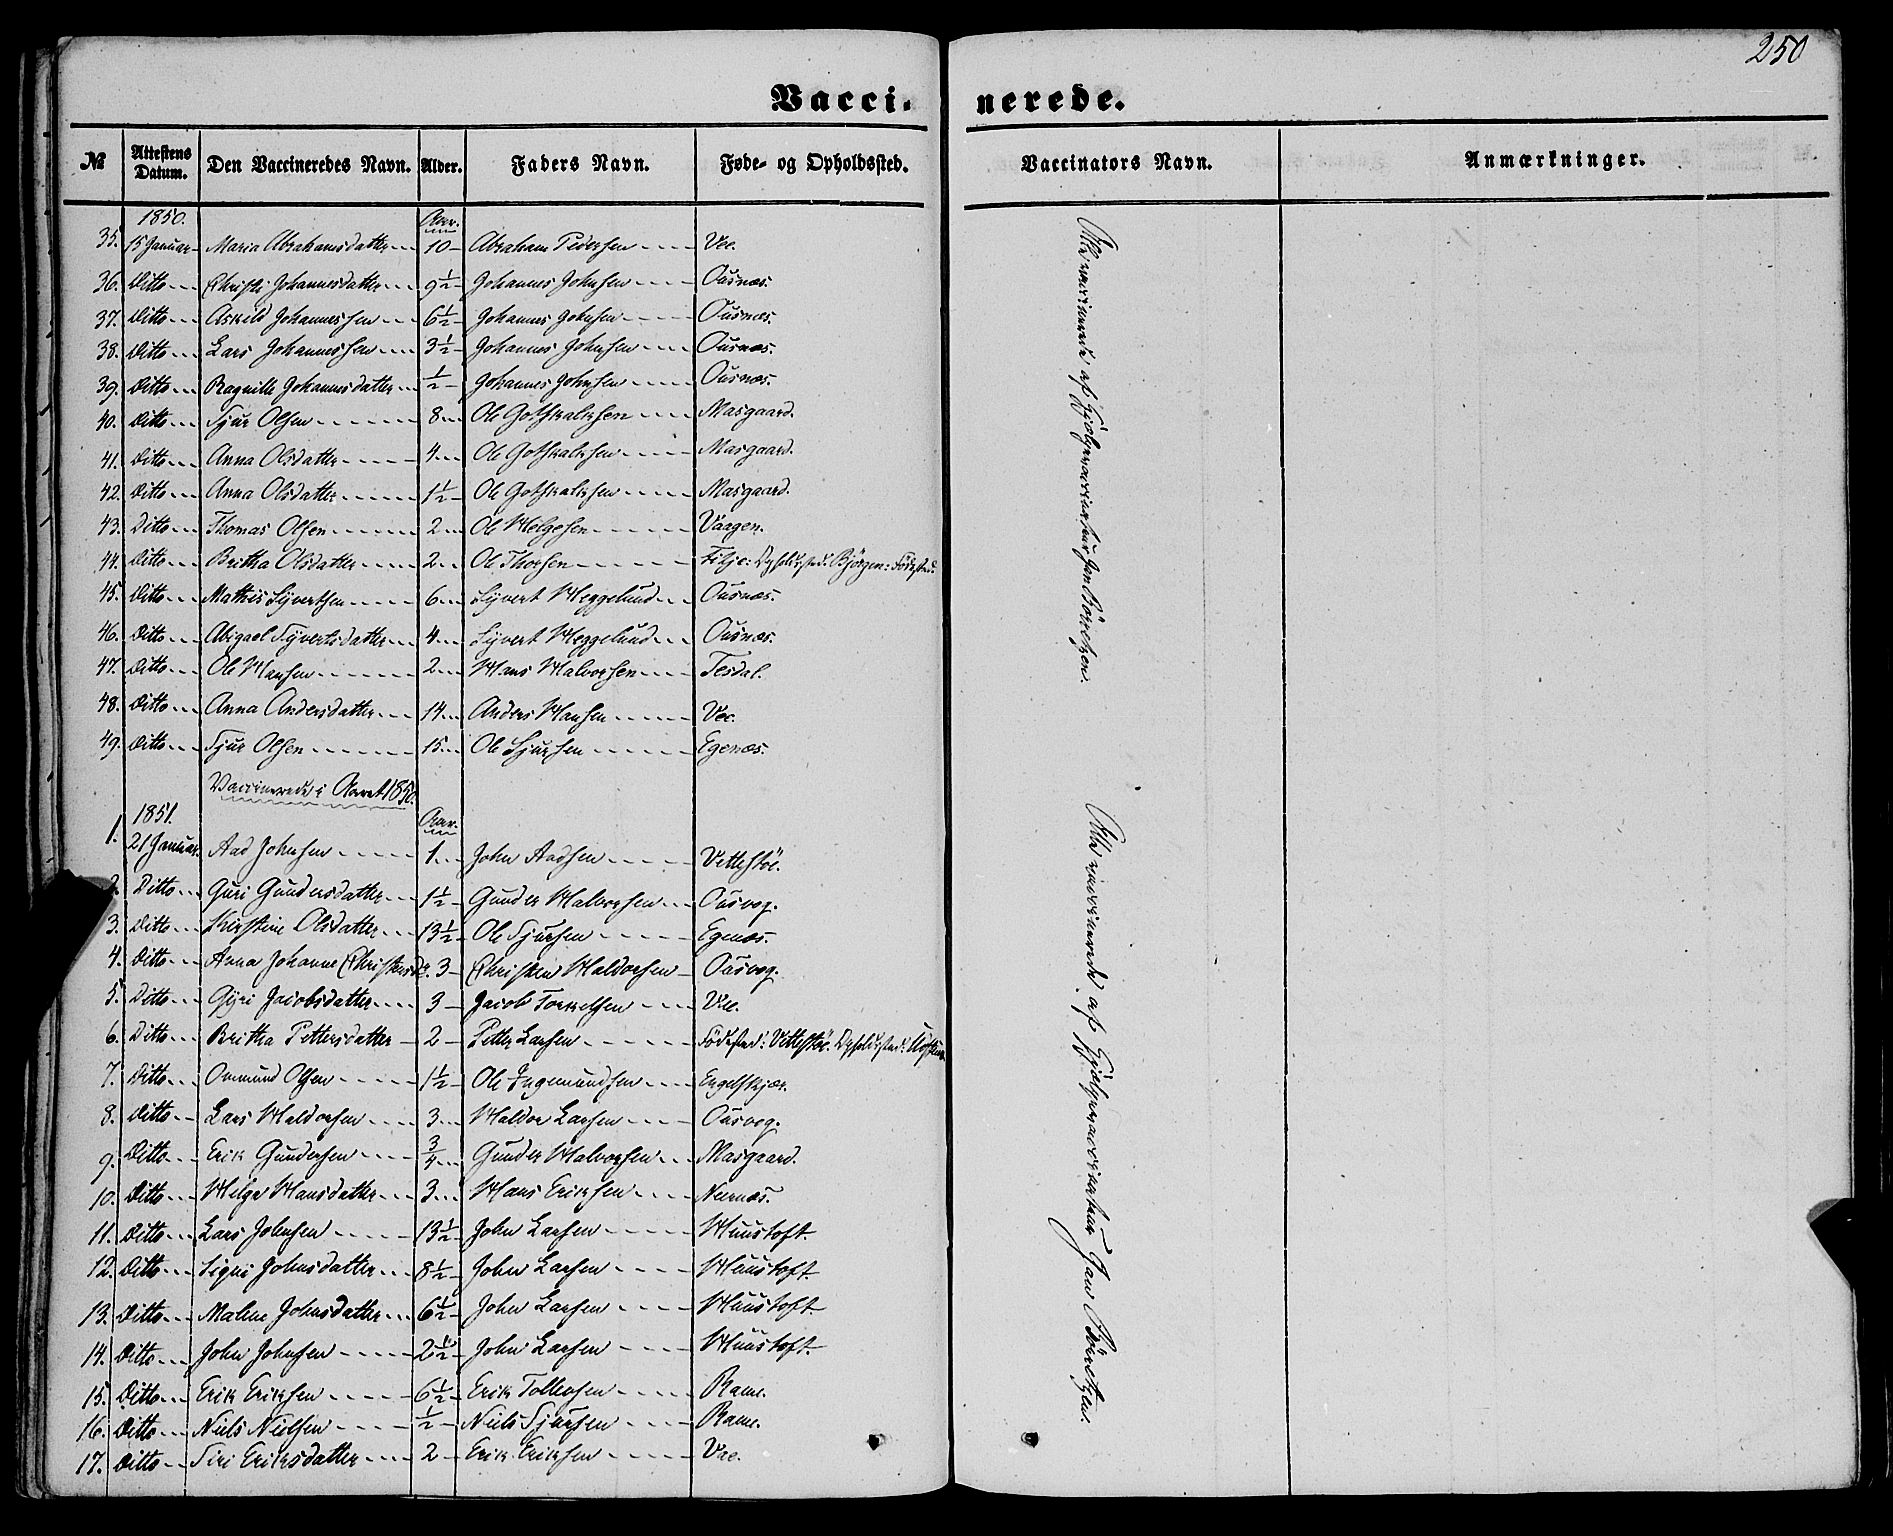 250
Vacci- nerede.
№ Attestens Datum. Den Vaccineredes Navn. Alder. Faders Navn. Føde- og Opholdssted. Vaccinators Navn. Anmærkninger.
1850. Aar.
35. 15 Januar Maria Abrahamsdatter 10 Abraham Pedersen Vee.
36. Ditto Christi Johannesdatter 9½ Johannes Johnsen Ousnæs.
37. Ditto Askild Johannessen 6½ Johannes Johnsen Ousnæs.
38. Ditto Lars Johannessen 3½ Johannes Johnsen Ousnæs.
39. Ditto Ragnille Johannesdatter ½ Johannes Johnsen Ousnæs.
40. Ditto Sjur Olsen 8 Ole Gothskalksen Masgaard.
41. Ditto Anna Olsdatter 4 Ole Gothskalksen Masgaard.
42. Ditto Anna Olsdatter 1½ Ole Gothskalksen Masgaard.
43. Ditto Thomas Olsen 2 Ole Helgesen Vaagen.
44. Ditto Britha Olsdatter 2 Ole Thorsen Fitje: Opholdsted. Bjørgen: Fødested.
45. Ditto Mathis Syvertsen 6 Syvert Heggelund Ousnæs.
46. Ditto Abigael Syvertsdatter 4 Syvert Heggelund Ousnæs.
47. Ditto Ole Hansen 2 Hans Halvorsen Tesdal.
48. Ditto Anna Andersdatter 14 Anders Hansen Vee.
49. Ditto Sjur Olsen 15 Ole Sjursen Egenæs.
Alle vaccinerede af Hjælpevaccinateur Jan Børretzen.
Vaccinerede i Aaret 1850.
1851. Aar.
1. 21 Januar. Aad Johnsen 1 John Aadsen Vettestøe.
2. Ditto Guri Gundersdatter 1½ Gunder Halvorsen Ousvog.
3. Ditto Kirstine Olsdatter 13½ Ole Sjursen Egenæs.
4. Ditto Anna Johanne Christensd. 3 Christen Haldorsen Ousvog.
5. Ditto Gyri Jacobsdatter 3 Jacob Torkelsen Vee.
6. Ditto Britha Pettersdatter 2 Petter Larsen Fødested: Vettestøe. Opholdssted:
7. Ditto Ommund Olsen 1½ Ole Ingemundsen Engelskjær.
8. Ditto Lars Haldorsen 3 Haldor Larsen Ousvog.
9. Ditto Erik Gundersen ¾ Gunder Halvorsen Masgaard.
10. Ditto Helga Hansdatter 3 Hans Eriksen Neernæs.
11. Ditto Lars Johnsen 13½ John Larsen Huustoft.
12. Ditto Signi Johnsdatter 8½ John Larsen Huustoft.
13. Ditto Malene Johnsdatter 6½ John Larsen Huustoft.
14. Ditto John Johnsen 2½ John Larsen Huustoft.
15. Ditto Erik Eriksen 6½ Erik Tollevsen Rame.
16. Ditto Niels Nielsen ½ Niels Sjursen Rame.
17. Ditto Siri Eriksdatter 2 Erik Eriksen Vee.
Alle vaccinerede af Hjælpevaccinateur Jan Børretzen.